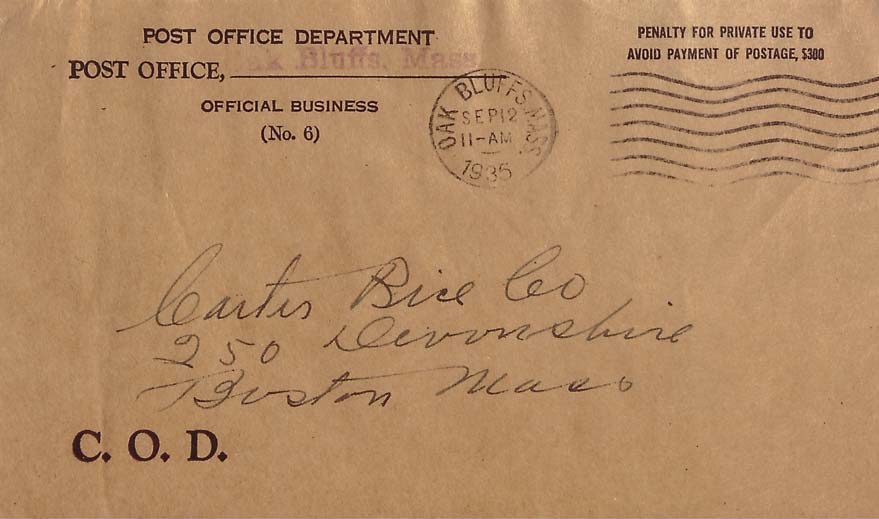 POST OFFICE DEPARTMENT
Oak Bluffs, Mass
POST OFFICE,
OFFICIAL BUSINESS
(No. 6)
PENALTY FOR PRIVATE USE TO
AVOID PAYMENT OF POSTAGE, $300
OAK BLUFFS MASS.
SEP 12
11-AM
1935
Carter Rice Co
250 Devonshire
Boston Mass
C. O. D.